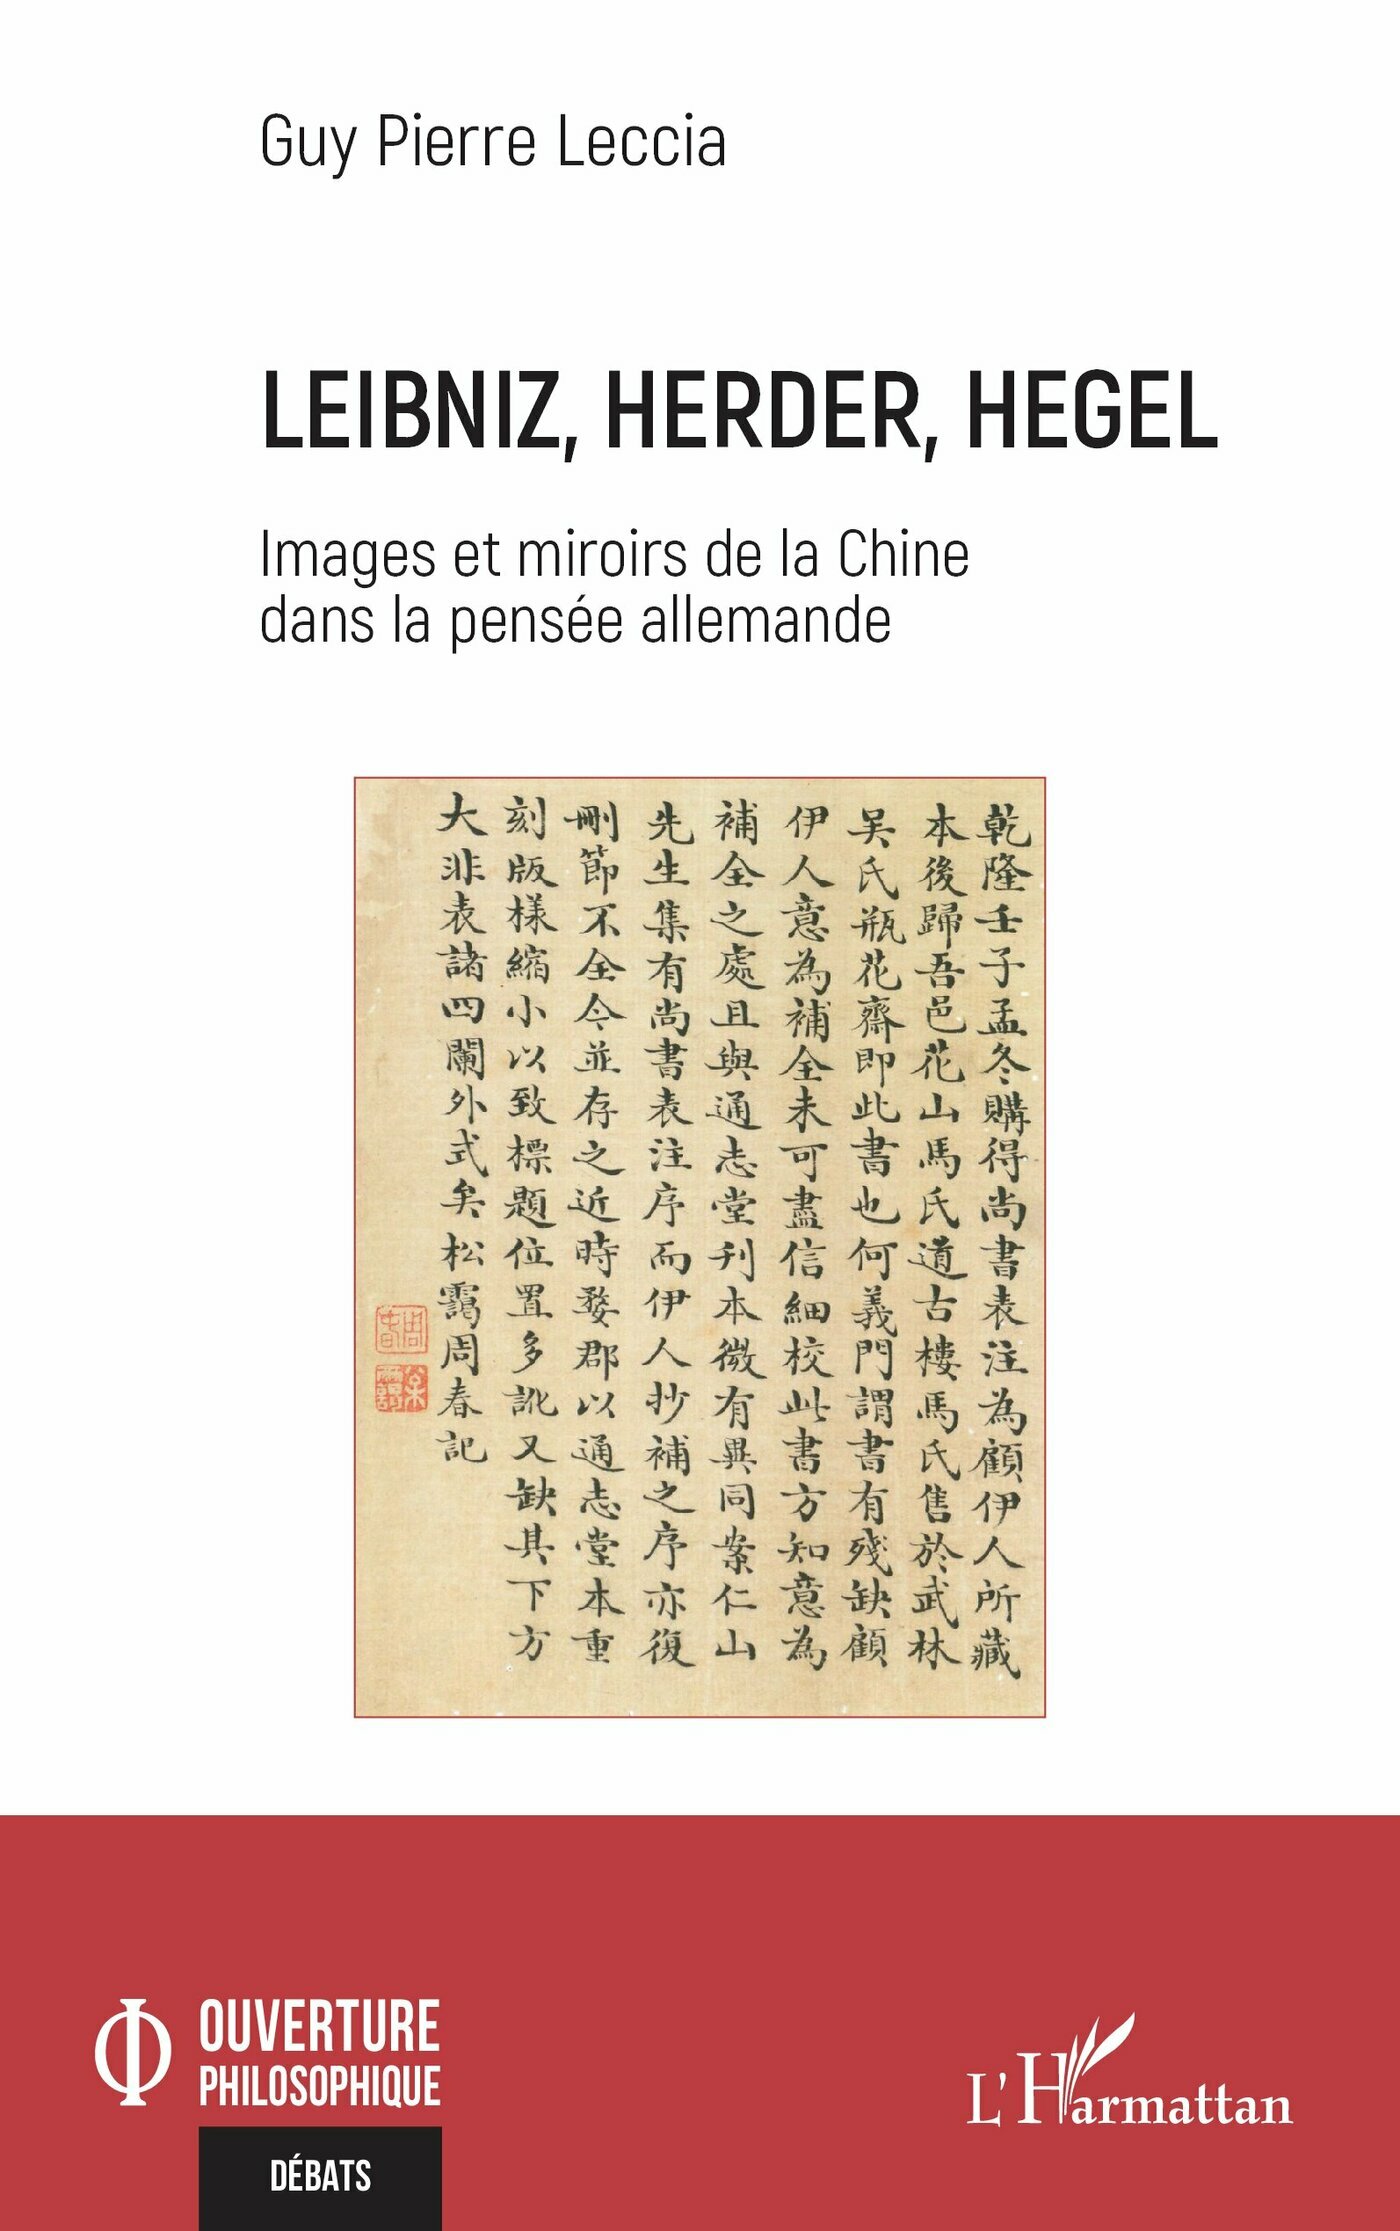 Guy Pierre Leccia
LEIBNIZ, HERDER, HEGEL
Images et miroirs de la Chine
dans la pensée allemande
乾隆壬子孟冬購得尚書表注為顧伊人所藏
本後歸吾邑花山馬氏道古樓馬氏售於武林
吴氏瓶花齋即此書也何義門謂書有殘缺顧
伊人意為補全未可盡信細校此書方知意為
補全之處且與通志堂刊本微有異同案仁山
先生集有尚書表注序而伊人抄補之序亦復
刪節不全今並存之近時婺郡以通志堂本重
刻版樣縮小以致標題位置多訛又缺其下方
大非表諸四闌外式矣松靄周春記
OUVERTURE
PHILOSOPHIQUE
DÉBATS
L'Harmattan